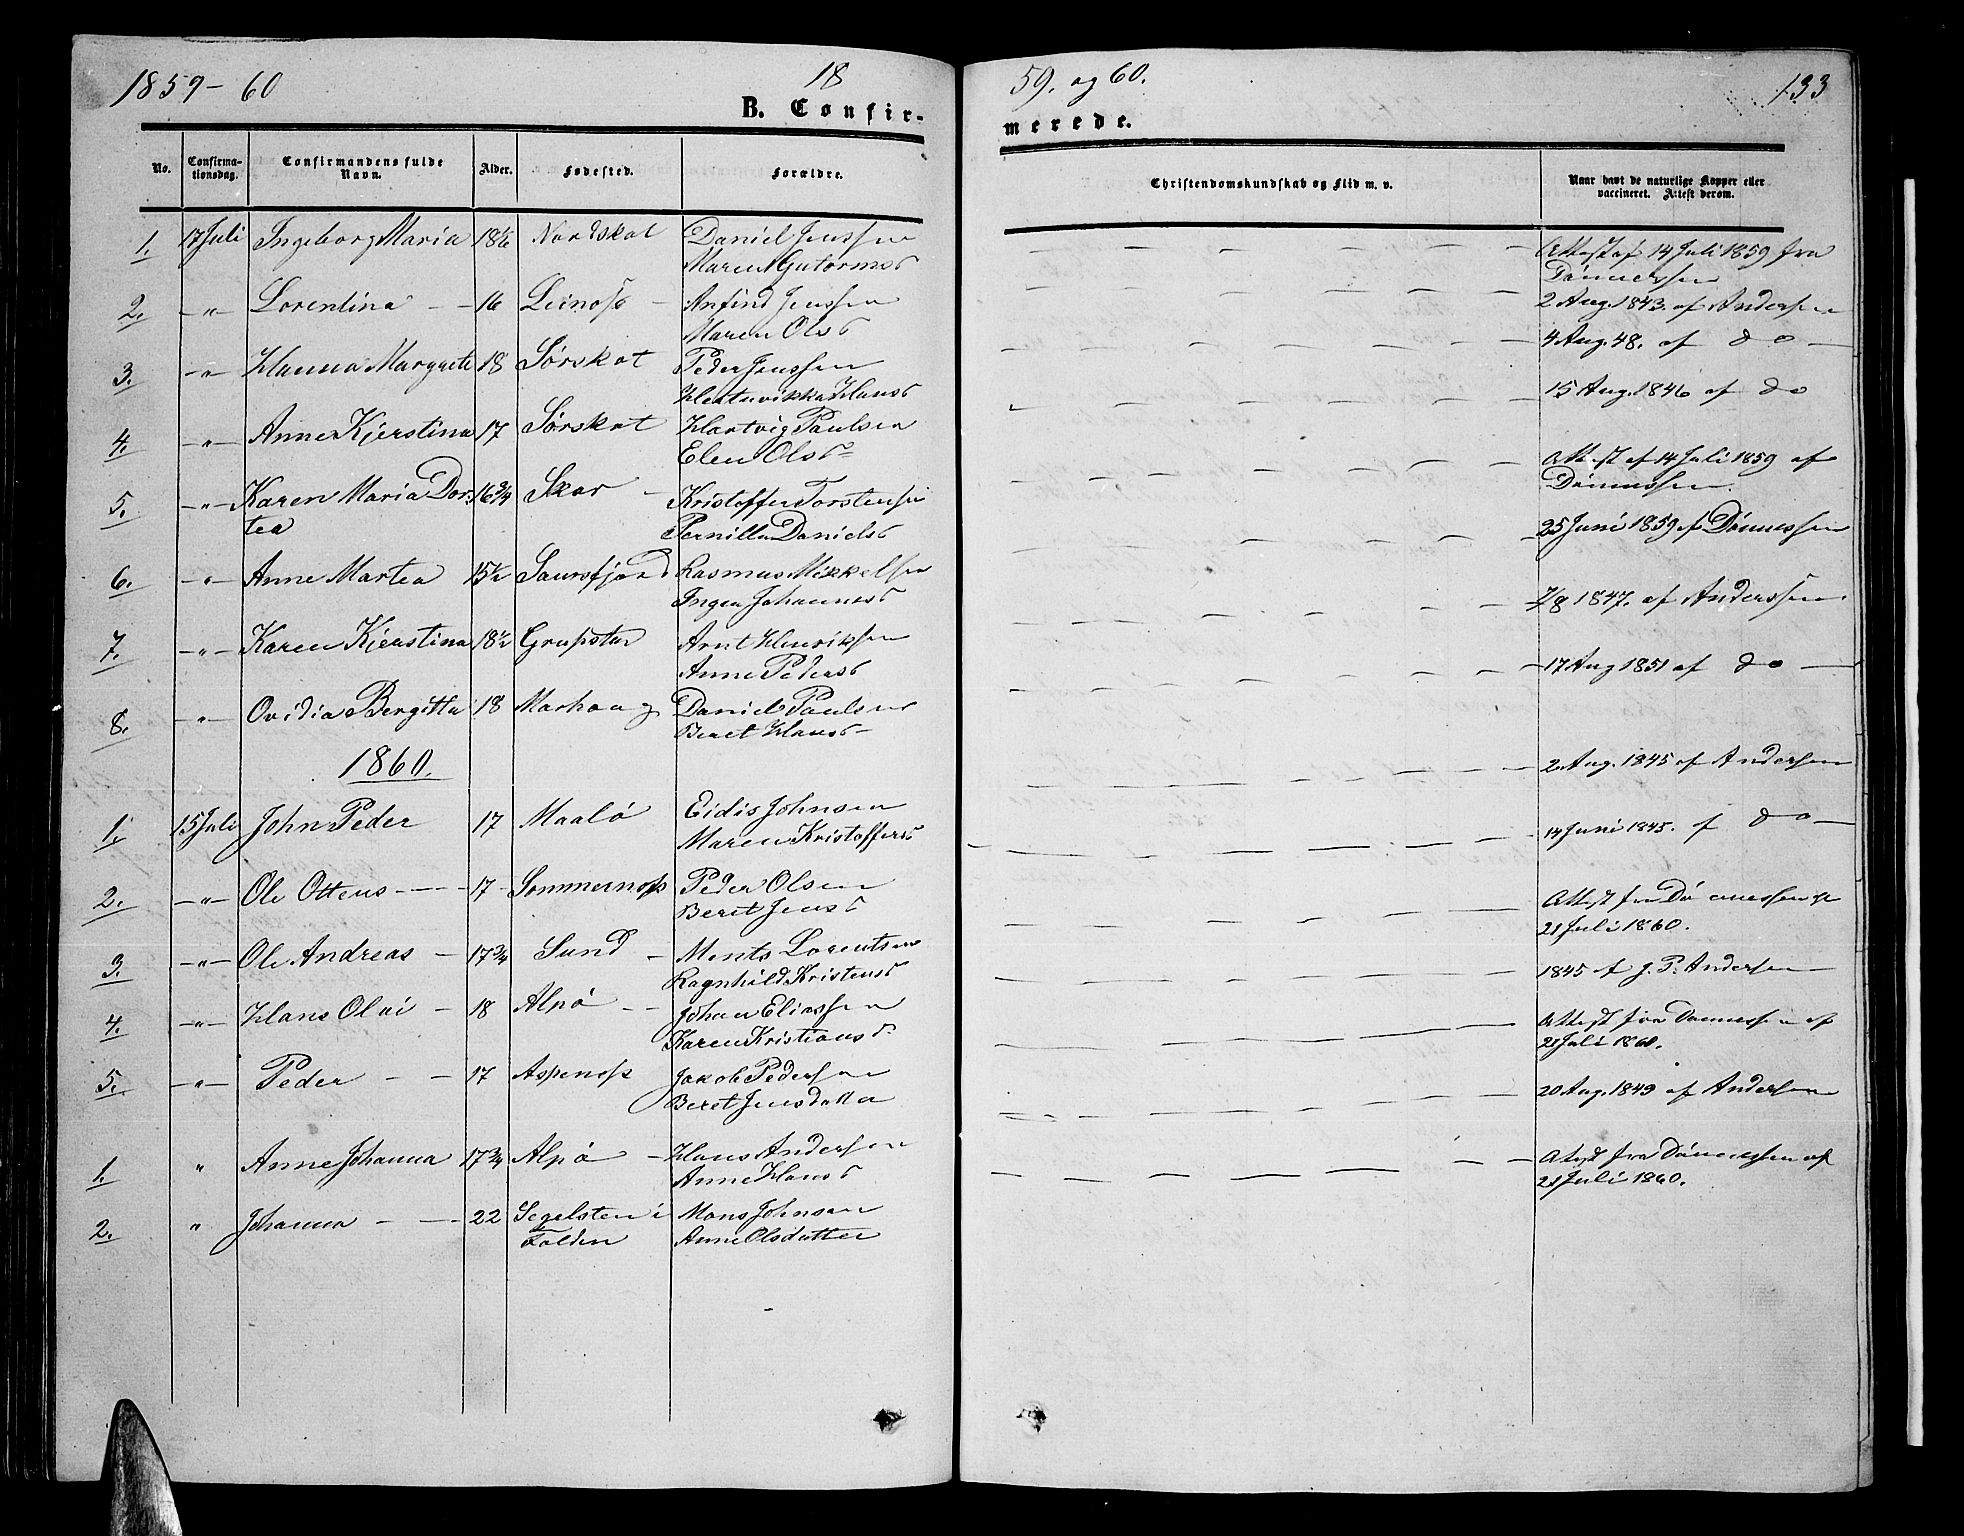 1859-60
18
59. og 60.
133
B. Confir-
merede.
No. Confirma-tionsdag. Confirmandens fulde Navn. Alder. Fødested. Forældre. Christendomskundskab og Flid m. v. Naar havt de naturlige Kopper eller vaccineret. Attest derom.
1. 17 Juli Ingeborg Maria 18½ Nordskot Daniel Jenssen
Maren Gutormsd
Attest af 14 Juli 1859 fra
Dønnessen
2. -"- Lorentina - 16 Leinoss - Anfind Jenssen
Maren Olsd
2 Aug. 1843. af Andersen
3. -"- Hanna Margrete 18 Sørskot Peder Jenssen
Hansd
4 Aug. 48. af do -
4. -"- Anne Kjerstina 17 Sørskot Hartvig Paulsen
Elen Olsd
15 Aug. 1846 af do
5. -"- Karen Maria Dor-
tea 16¾ Skar - Kristoffer Torstensen
Pernilla Danielsd
Attest af 14 Juli 1859 af
Dønnessen.
6. -"- Anne Martea 15½ Saursfjord Rasmus Mikkelsen
Inger Johannesd
25 Juni 1859 af Dønnessen
7. -"- Karen Kjerstina 18½ Arnt Henriksen
Anne Pedersd
7/8 1847. af Anderssen.
8. -"- Ovidia Bergitta 18 Marhaug Daniel Paulsen
Beret Hansd
17 Aug 1851 af do -
1860.
1. 15 Juli John Peder 17 Maalø Eidis Johnsen
Maren Kristoffersd
2 Aug. 1845 af Andersen
14 Juni 1845. af do -
2. -"- Ole Ottens - - - 17 Sommernoss Peder Olsen
Beret Jensd
Attest fra Dønnessen af
21 Juli 1860.
3. -"- Ole Andreas - 17¾ Sund - Ments Lorentsen
Ragnhild Kristensd
1845 af J. P. Andersen
4. -"- Hans Olai - 18 Alpø - - Johan Eliassen
Karen Kristiansd
Attest fra Dønnessen af
21 Juli 1860.
5. -"- Peder - - 17 Aspenoss Jakob Pedersen
Beret Jensdatter
20 Aug. 1849 af Andersen
1. " Anne Johanna 17¾ Alpø - Hans Andersen
Anne Hansd
Atest fra Dønnessen af
21 Juli 1860.
2. " Johanna - - - 22 Segelsten i
Folden Mons Johnsen
Anne Olsdatter